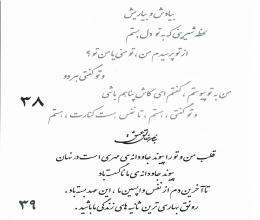 بیادش و بیاریش
لحظهٔ شیرینی که به تو دل بستم
از تو پرسیدم من، تو منی یا من تو؟
و تو گفتی هر دو
من به تو پیوستم، گفتم ای کاش پناهم باشی
۳۸
و تو گفتی، هستم، تا نفس هست کنارت، هستم
قلب من و تو را پیوند جاودانه‌ی مهری است در نهان
پیوند جاودانه‌ی ما ناگسسته باد
تا آخرین دم از نفس واپسین ما، این عهد بسته باد.
رونق بهاری ترین ثانیه های زندگی ما باشید.
۳۹